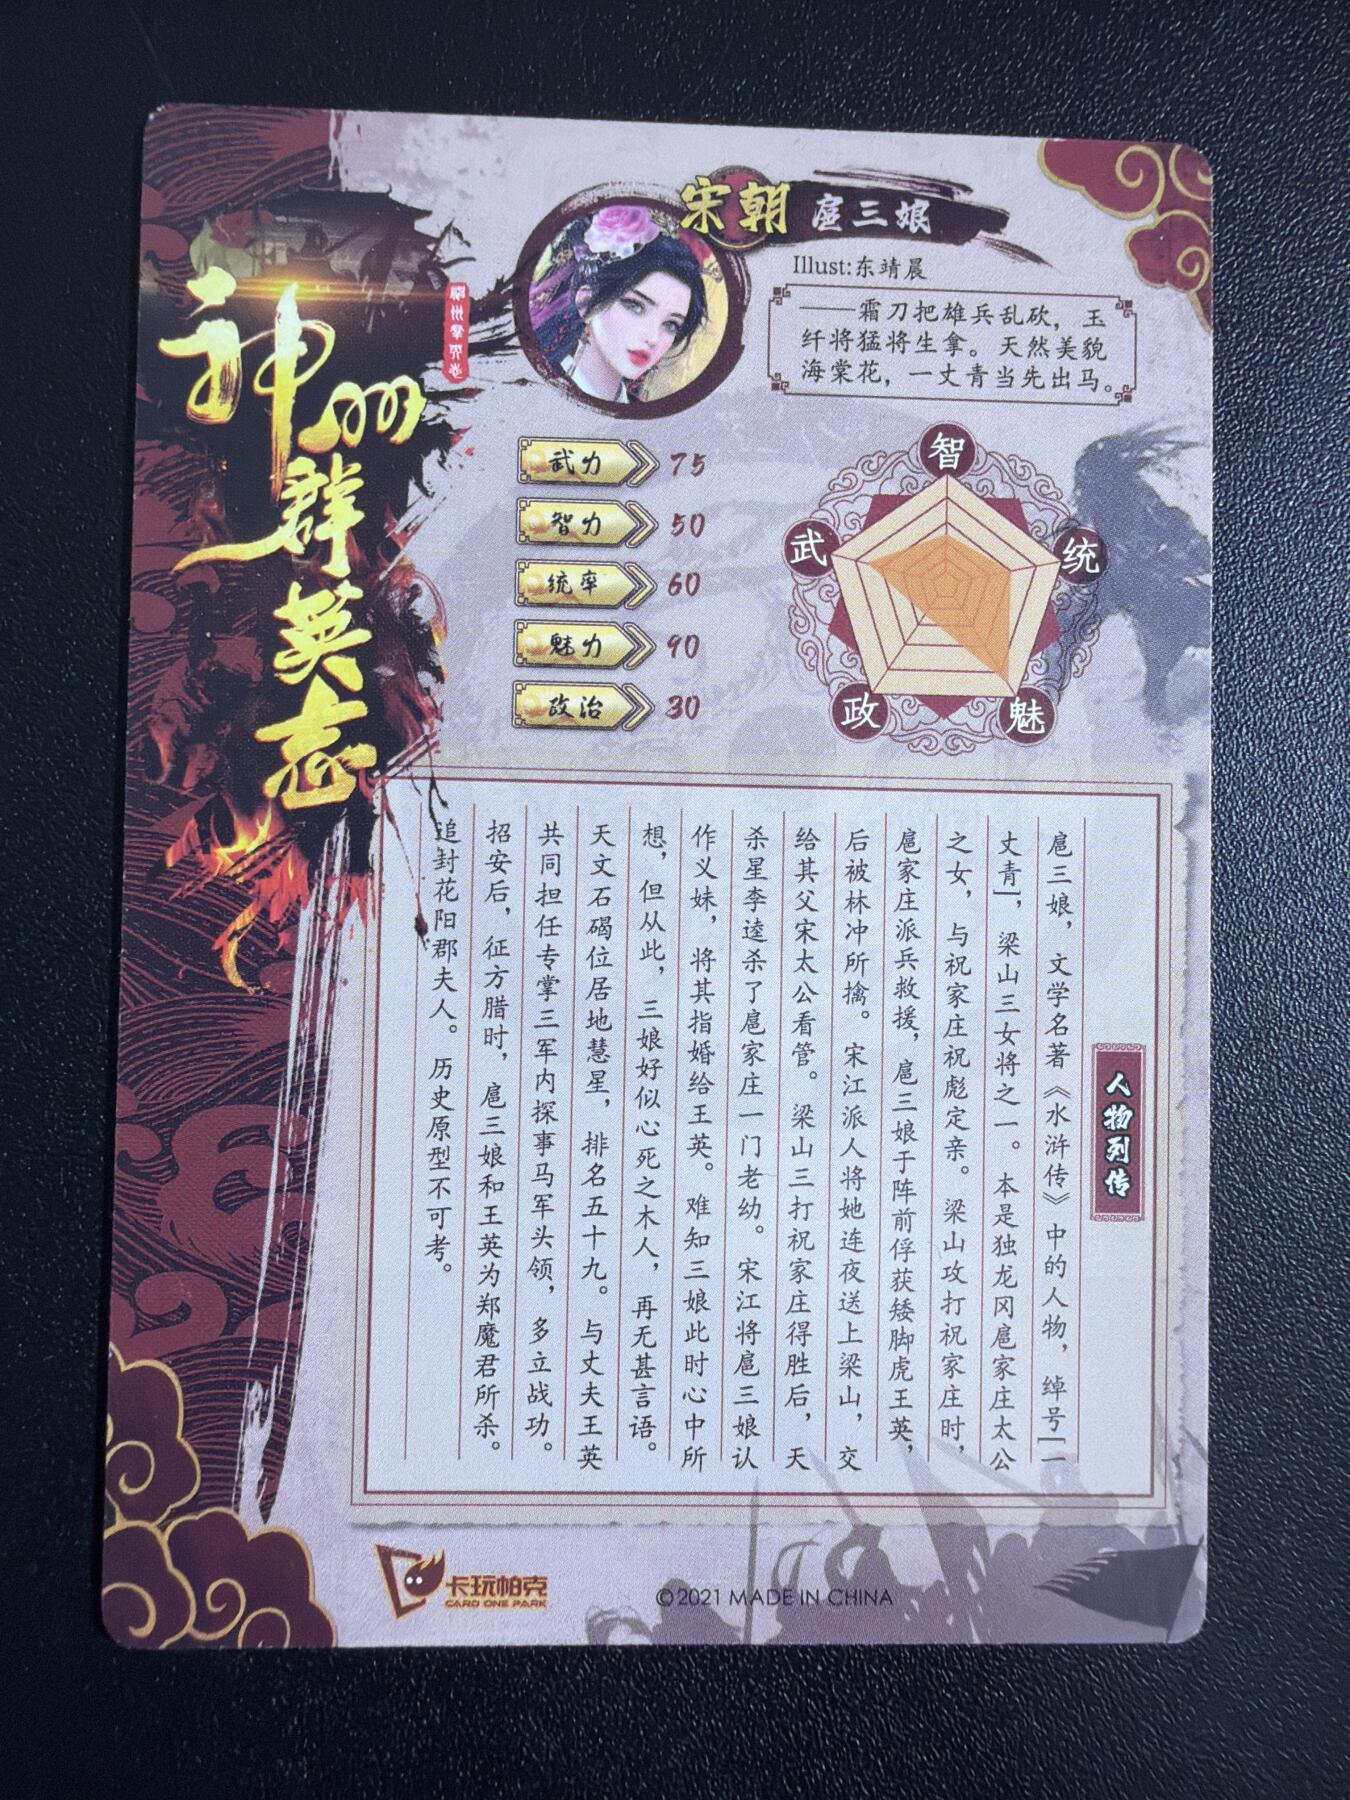 神州
群
英
志
神州群英志
宋朝 扈三娘
Illust:东靖晨
——霜刀把雄兵乱砍，玉
纤将猛将生拿。天然美貌
海棠花，一丈青当先出马。
武力 75
智力 50
统率 60
魅力 90
政治 30
智
武
统
政
魅
人物列传
扈三娘，文学名著《水浒传》中的人物，绰号[一
丈青]，梁山三女将之一。本是独龙冈扈家庄太公
之女，与祝家庄祝彪定亲。梁山攻打祝家庄时，
扈家庄派兵救援，扈三娘于阵前俘获矮脚虎王英，
后被林冲所擒。宋江派人将她连夜送上梁山，交
给其父宋太公看管。梁山三打祝家庄得胜后，天
杀星李逵杀了扈家庄一门老幼。宋江将扈三娘认
作义妹，将其指婚给王英。难知三娘此时心中所
想，但从此，三娘好似心死之木人，再无甚言语。
天文石碣位居地慧星，排名五十九。与丈夫王英
共同担任专掌三军内探事马军头领，多立战功。
招安后，征方腊时，扈三娘和王英为郑魔君所杀。
追封花阳郡夫人。历史原型不可考。
卡玩帕克
CARD ONE PARK
©2021 MADE IN CHINA